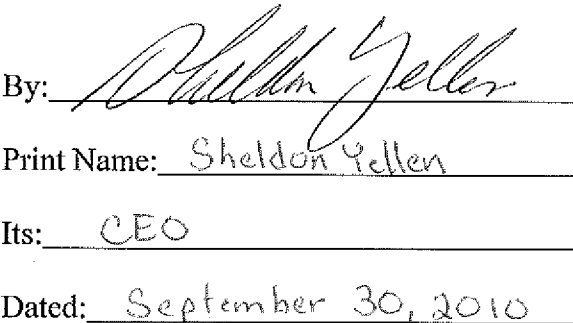 By: Sheldon Yellen
Print Name: Sheldon Yellen
Its: CEO
Dated: September 30, 2010